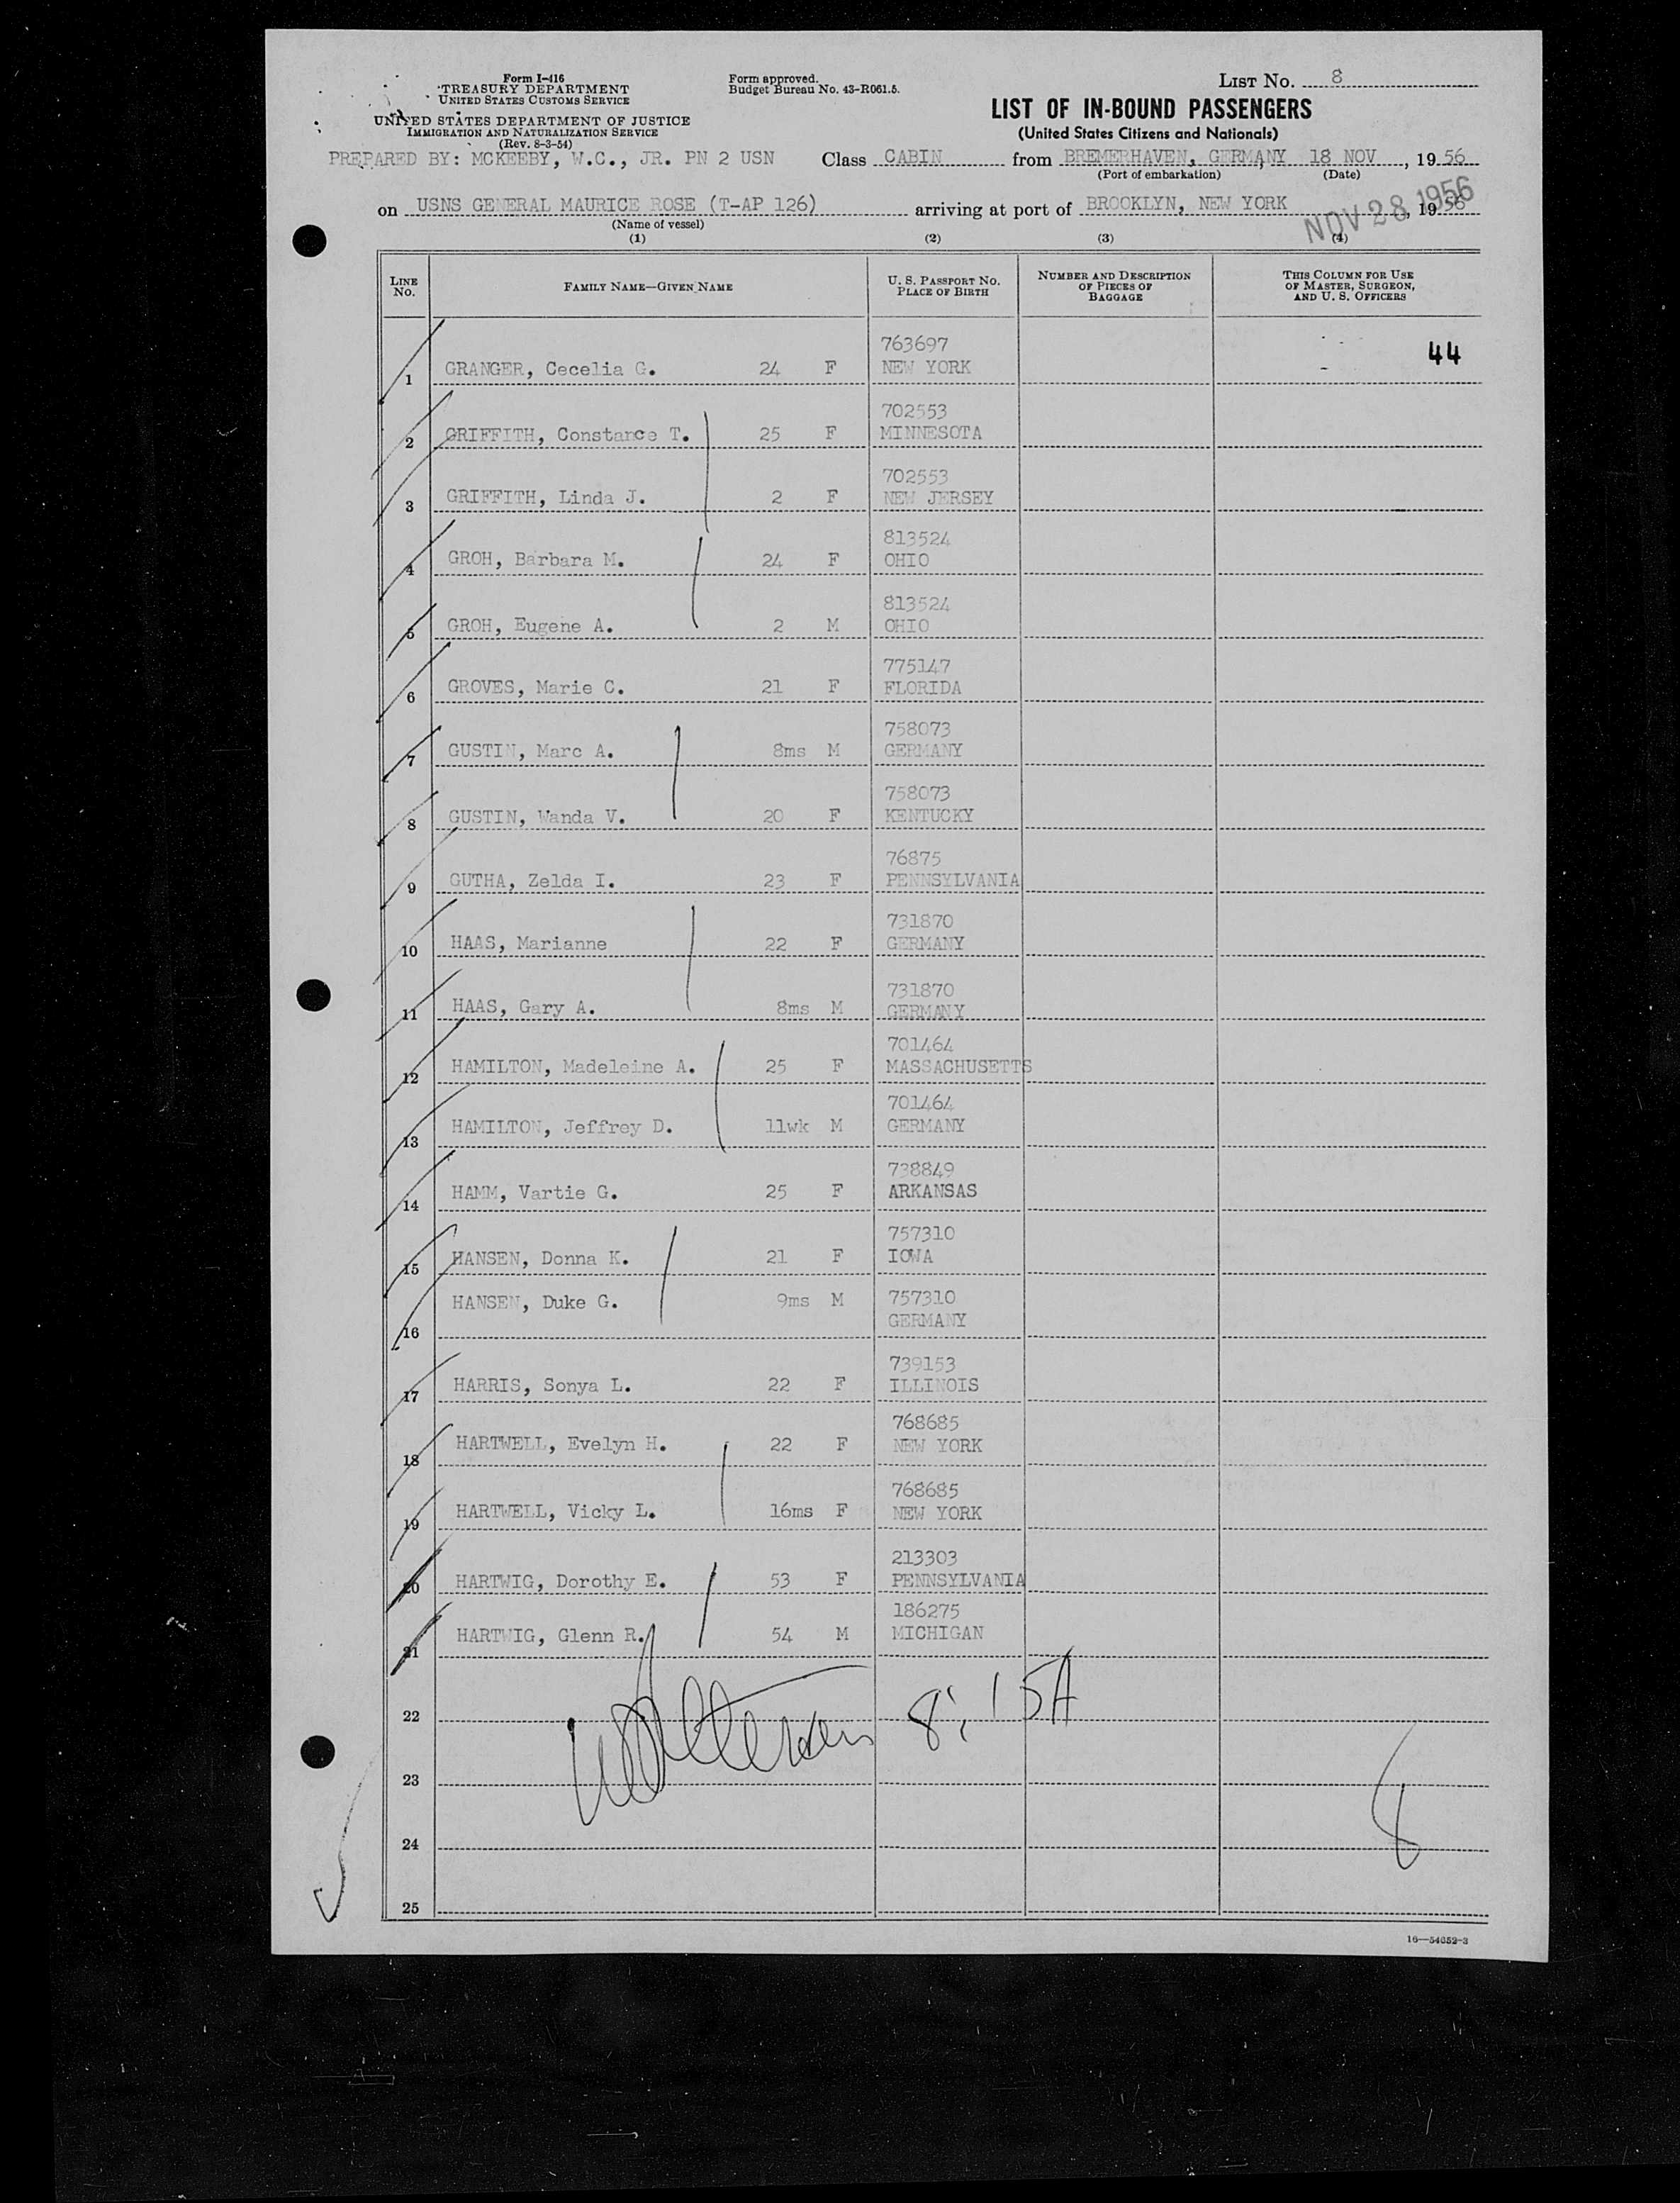 Form I-416
TREASURY DEPARTMENT
UNITED STATES CUSTOMS SERVICE
UNITED STATES DEPARTMENT OF JUSTICE
IMMIGRATION AND NATURALIZATION SERVICE
(Rev. 8-3-54)
Form approved.
Budget Bureau No. 43-R061.5.
LIST No. 8
LIST OF IN-BOUND PASSENGERS
(United States Citizens and Nationals)
PREPARED BY: MCKEEBY, W.C., JR. PN 2 USN Class CABIN from BREMERHAVEN, GERMANY 18 NOV, 19 56
(Port of embarkation) (Date)
on USNS GENERAL MAURICE ROSE (T-AP 126) arriving at port of BROOKLYN, NEW YORK, 19 56
NOV 28 1956
(Name of vessel)
(1) (2) (3) (4)
LINE No. FAMILY NAME—GIVEN NAME U. S. PASSPORT NO. PLACE OF BIRTH NUMBER AND DESCRIPTION OF PIECES OF BAGGAGE THIS COLUMN FOR USE OF MASTER, SURGEON, AND U. S. OFFICERS
44
763697
1 GRANGER, Cecelia G. 24 F NEW YORK
702553
2 GRIFFITH, Constance T. 25 F MINNESOTA
702553
3 GRIFFITH, Linda J. 2 F NEW JERSEY
813524
4 GROH, Barbara M. 24 F OHIO
813524
5 GROH, Eugene A. 2 M OHIO
775147
6 GROVES, Marie C. 21 F FLORIDA
758073
7 GUSTIN, Marc A. 8ms M GERMANY
758073
8 GUSTIN, Wanda V. 20 F KENTUCKY
76875
9 GUTHA, Zelda I. 23 F PENNSYLVANIA
731870
10 HAAS, Marianne 22 F GERMANY
731870
11 HAAS, Gary A. 8ms M GERMANY
701464
12 HAMILTON, Madeleine A. 25 F MASSACHUSETTS
701464
13 HAMILTON, Jeffrey D. 11wk M GERMANY
738849
14 HAMM, Vartie G. 25 F ARKANSAS
757310
15 HANSEN, Donna K. 21 F IOWA
HANSEN, Duke G. 9ms M 757310
16 GERMANY
739153
17 HARRIS, Sonya L. 22 F ILLINOIS
768685
18 HARTWELL, Evelyn H. 22 F NEW YORK
768685
19 HARTWELL, Vicky L. 16ms F NEW YORK
213303
20 HARTWIG, Dorothy E. 53 F PENNSYLVANIA
186275
21 HARTWIG, Glenn R. 54 M MICHIGAN
22 8:15A
23
8
24
25
16—54052-3